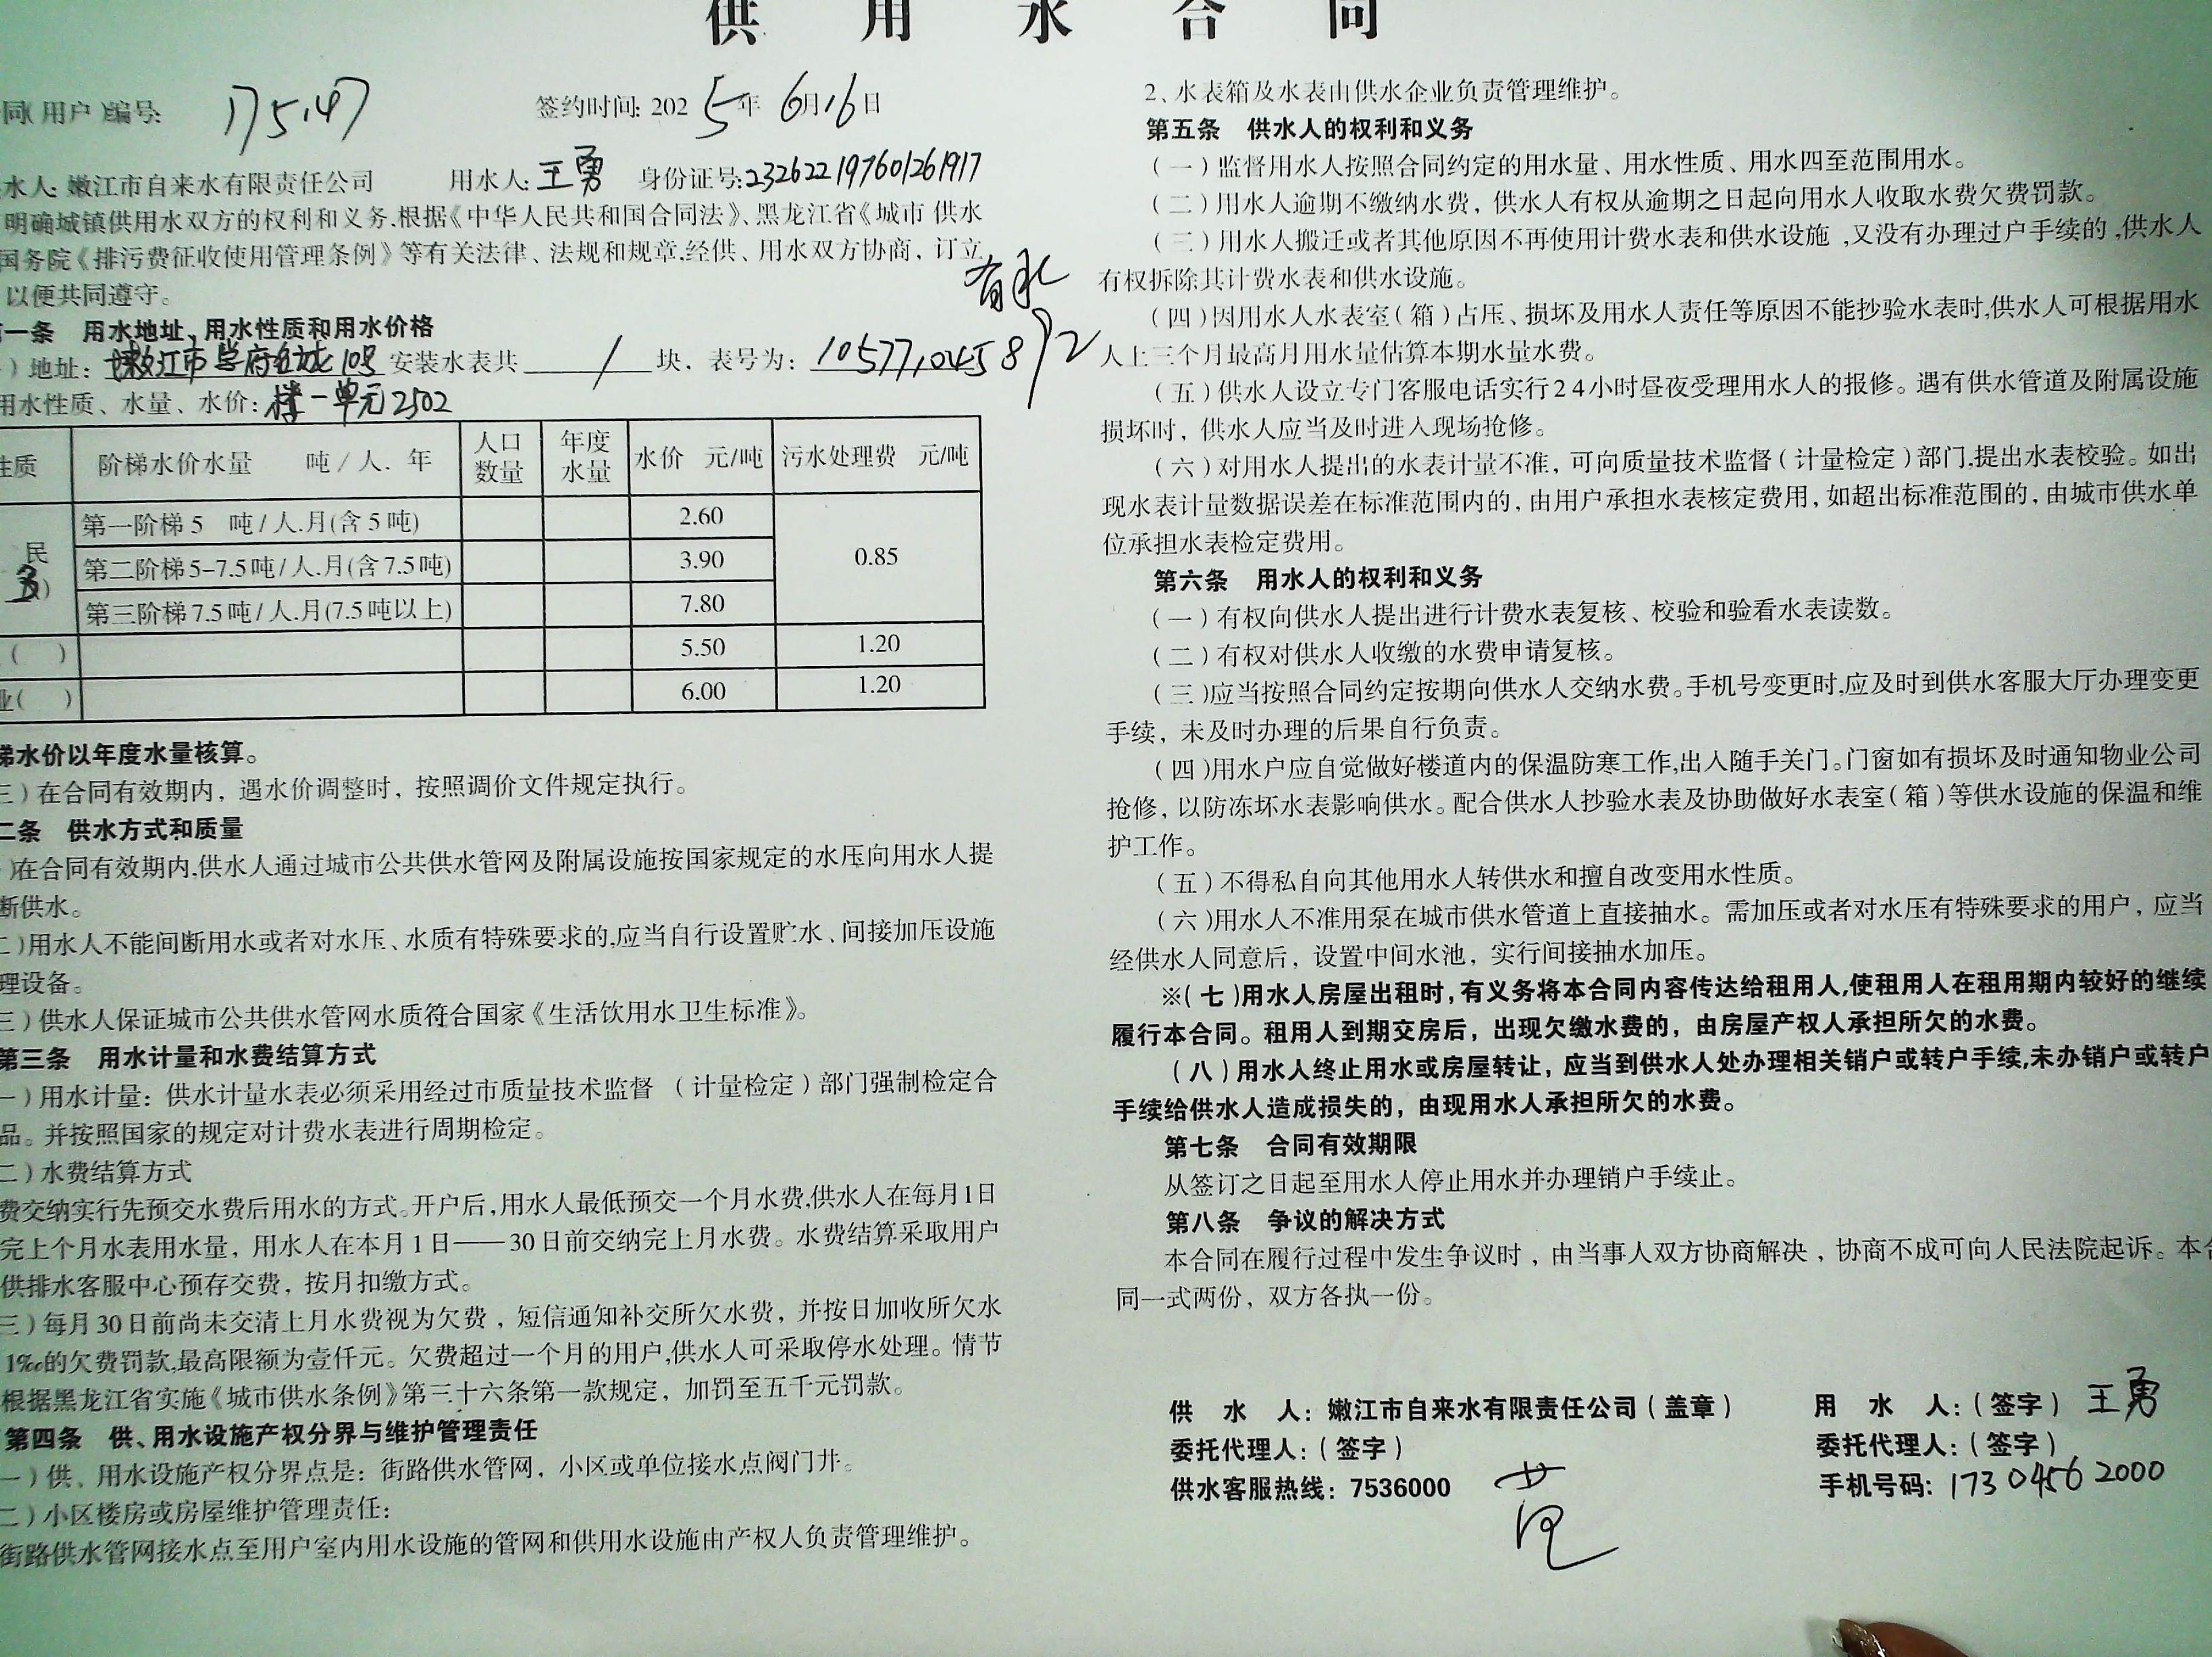 供用水合同
同(用户)编号: 175147
签约时间: 2025年6月16日
水人: 嫩江市自来水有限责任公司 用水人: 王勇 身份证号: 232622197601261917
明确城镇供用水双方的权利和义务.根据《中华人民共和国合同法》、黑龙江省《城市 供水
国务院《排污费征收使用管理条例》等有关法律、法规和规章.经供、用水双方协商，订立
以便共同遵守。
一条 用水地址、用水性质和用水价格
)地址: 嫩江市学府名城10号 安装水表共 1 块，表号为: 1057710458
有水
92
用水性质、水量、水价: 楼一单元2502
性质 阶梯水价水量 吨/人.年 人口数量 年度水量 水价 元/吨 污水处理费 元/吨
民 第一阶梯5 吨/人.月(含5吨) 2.60 0.85
第二阶梯5-7.5吨/人.月(含7.5吨) 3.90
第三阶梯7.5吨/人.月(7.5吨以上) 7.80
( ) 5.50 1.20
业( ) 6.00 1.20
梯水价以年度水量核算。
三)在合同有效期内，遇水价调整时，按照调价文件规定执行。
二条 供水方式和质量
)在合同有效期内,供水人通过城市公共供水管网及附属设施按国家规定的水压向用水人提
断供水。
二)用水人不能间断用水或者对水压、水质有特殊要求的,应当自行设置贮水、间接加压设施
理设备。
三)供水人保证城市公共供水管网水质符合国家《生活饮用水卫生标准》。
第三条 用水计量和水费结算方式
一)用水计量：供水计量水表必须采用经过市质量技术监督 (计量检定)部门强制检定合
品。并按照国家的规定对计费水表进行周期检定。
二)水费结算方式
费交纳实行先预交水费后用水的方式。开户后,用水人最低预交一个月水费,供水人在每月1日
完上个月水表用水量，用水人在本月1日——30日前交纳完上月水费。水费结算采取用户
供排水客服中心预存交费，按月扣缴方式。
三)每月30日前尚未交清上月水费视为欠费，短信通知补交所欠水费，并按日加收所欠水
1‰的欠费罚款,最高限额为壹仟元。欠费超过一个月的用户,供水人可采取停水处理。情节
根据黑龙江省实施《城市供水条例》第三十六条第一款规定，加罚至五千元罚款。
第四条 供、用水设施产权分界与维护管理责任
一)供、用水设施产权分界点是：街路供水管网，小区或单位接水点阀门井。
二)小区楼房或房屋维护管理责任：
街路供水管网接水点至用户室内用水设施的管网和供用水设施由产权人负责管理维护。
2、水表箱及水表由供水企业负责管理维护。
第五条 供水人的权利和义务
(一)监督用水人按照合同约定的用水量、用水性质、用水四至范围用水。
(二)用水人逾期不缴纳水费，供水人有权从逾期之日起向用水人收取水费欠费罚款。
(三)用水人搬迁或者其他原因不再使用计费水表和供水设施,又没有办理过户手续的,供水人
有权拆除其计费水表和供水设施。
(四)因用水人水表室(箱)占压、损坏及用水人责任等原因不能抄验水表时,供水人可根据用水
人上三个月最高月用水量估算本期水量水费。
(五)供水人设立专门客服电话实行24小时昼夜受理用水人的报修。遇有供水管道及附属设施
损坏时，供水人应当及时进入现场抢修。
(六)对用水人提出的水表计量不准，可向质量技术监督(计量检定)部门.提出水表校验。如出
现水表计量数据误差在标准范围内的，由用户承担水表核定费用，如超出标准范围的，由城市供水单
位承担水表检定费用。
第六条 用水人的权利和义务
(一)有权向供水人提出进行计费水表复核、校验和验看水表读数。
(二)有权对供水人收缴的水费申请复核。
(三)应当按照合同约定按期向供水人交纳水费。手机号变更时,应及时到供水客服大厅办理变更
手续，未及时办理的后果自行负责。
(四)用水户应自觉做好楼道内的保温防寒工作,出入随手关门。门窗如有损坏及时通知物业公司
抢修，以防冻坏水表影响供水。配合供水人抄验水表及协助做好水表室(箱)等供水设施的保温和维
护工作。
(五)不得私自向其他用水人转供水和擅自改变用水性质。
(六)用水人不准用泵在城市供水管道上直接抽水。需加压或者对水压有特殊要求的用户，应当
经供水人同意后，设置中间水池，实行间接抽水加压。
※(七)用水人房屋出租时,有义务将本合同内容传达给租用人,使租用人在租用期内较好的继续
履行本合同。租用人到期交房后，出现欠缴水费的，由房屋产权人承担所欠的水费。
(八)用水人终止用水或房屋转让，应当到供水人处办理相关销户或转户手续,未办销户或转户
手续给供水人造成损失的，由现用水人承担所欠的水费。
第七条 合同有效期限
从签订之日起至用水人停止用水并办理销户手续止。
第八条 争议的解决方式
本合同在履行过程中发生争议时，由当事人双方协商解决，协商不成可向人民法院起诉。本合
同一式两份，双方各执一份。
供 水 人：嫩江市自来水有限责任公司(盖章) 用 水 人：(签字) 王勇
委托代理人：(签字) 委托代理人：(签字)
供水客服热线：7536000 手机号码：17304562000